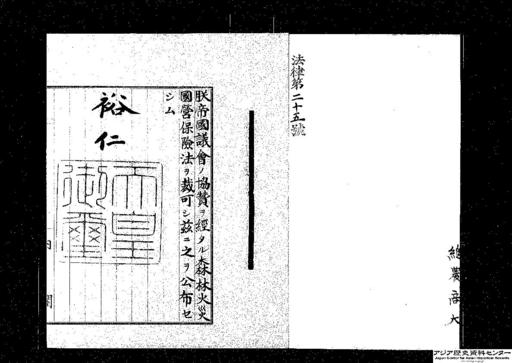 法律第二十五號
總農商大
朕帝國議會ノ協贊ヲ經タル森林火災
國營保險法ヲ裁可シ茲ニ之ヲ公布セ
シム
裕仁
天皇
御璽
内閣
アジア歴史資料センター
Japan Center for Asian Historical Records